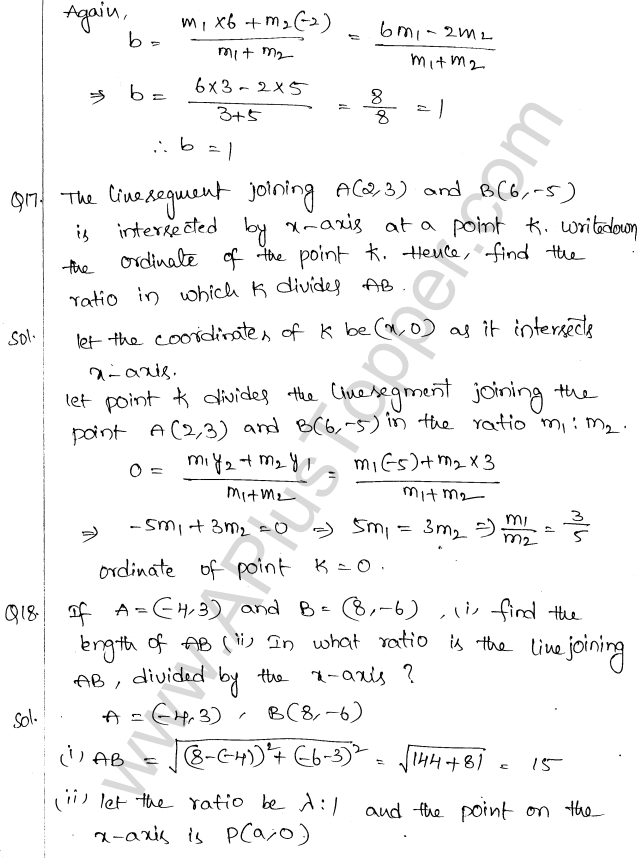 Again,
b = m₁×6 + m₂(-2) / m₁+m₂ = 6m₁ - 2m₂ / m₁+m₂
⇒ b = 6×3 - 2×5 / 3+5 = 8/8 = 1
∴ b = 1
Q17. The linesegment joining A(2,3) and B(6,-5)
is intersected by x-axis at a point K. writedown
the ordinate of the point K. Hence, find the
ratio in which K divides AB.
Sol. let the coordinates of K be (x,0) as it intersects
x-axis.
let point K divides the linesegment joining the
point A(2,3) and B(6,-5) in the ratio m₁:m₂.
0 = m₁y₂ + m₂y₁ / m₁+m₂ = m₁(-5) + m₂×3 / m₁+m₂
⇒ -5m₁ + 3m₂ = 0 ⇒ 5m₁ = 3m₂ ⇒ m₁/m₂ = 3/5
ordinate of point K = 0.
Q18. If A = (-4,3) and B = (8,-6), (i) find the
length of AB (ii) In what ratio is the line joining
AB, divided by the x-axis?
Sol. A = (-4,3), B(8,-6)
(i) AB = √(8-(-4))² + (-6-3)² = √144+81 = 15
(ii) let the ratio be λ:1 and the point on the
x-axis is P(a,0)
www.APlusTopper.com